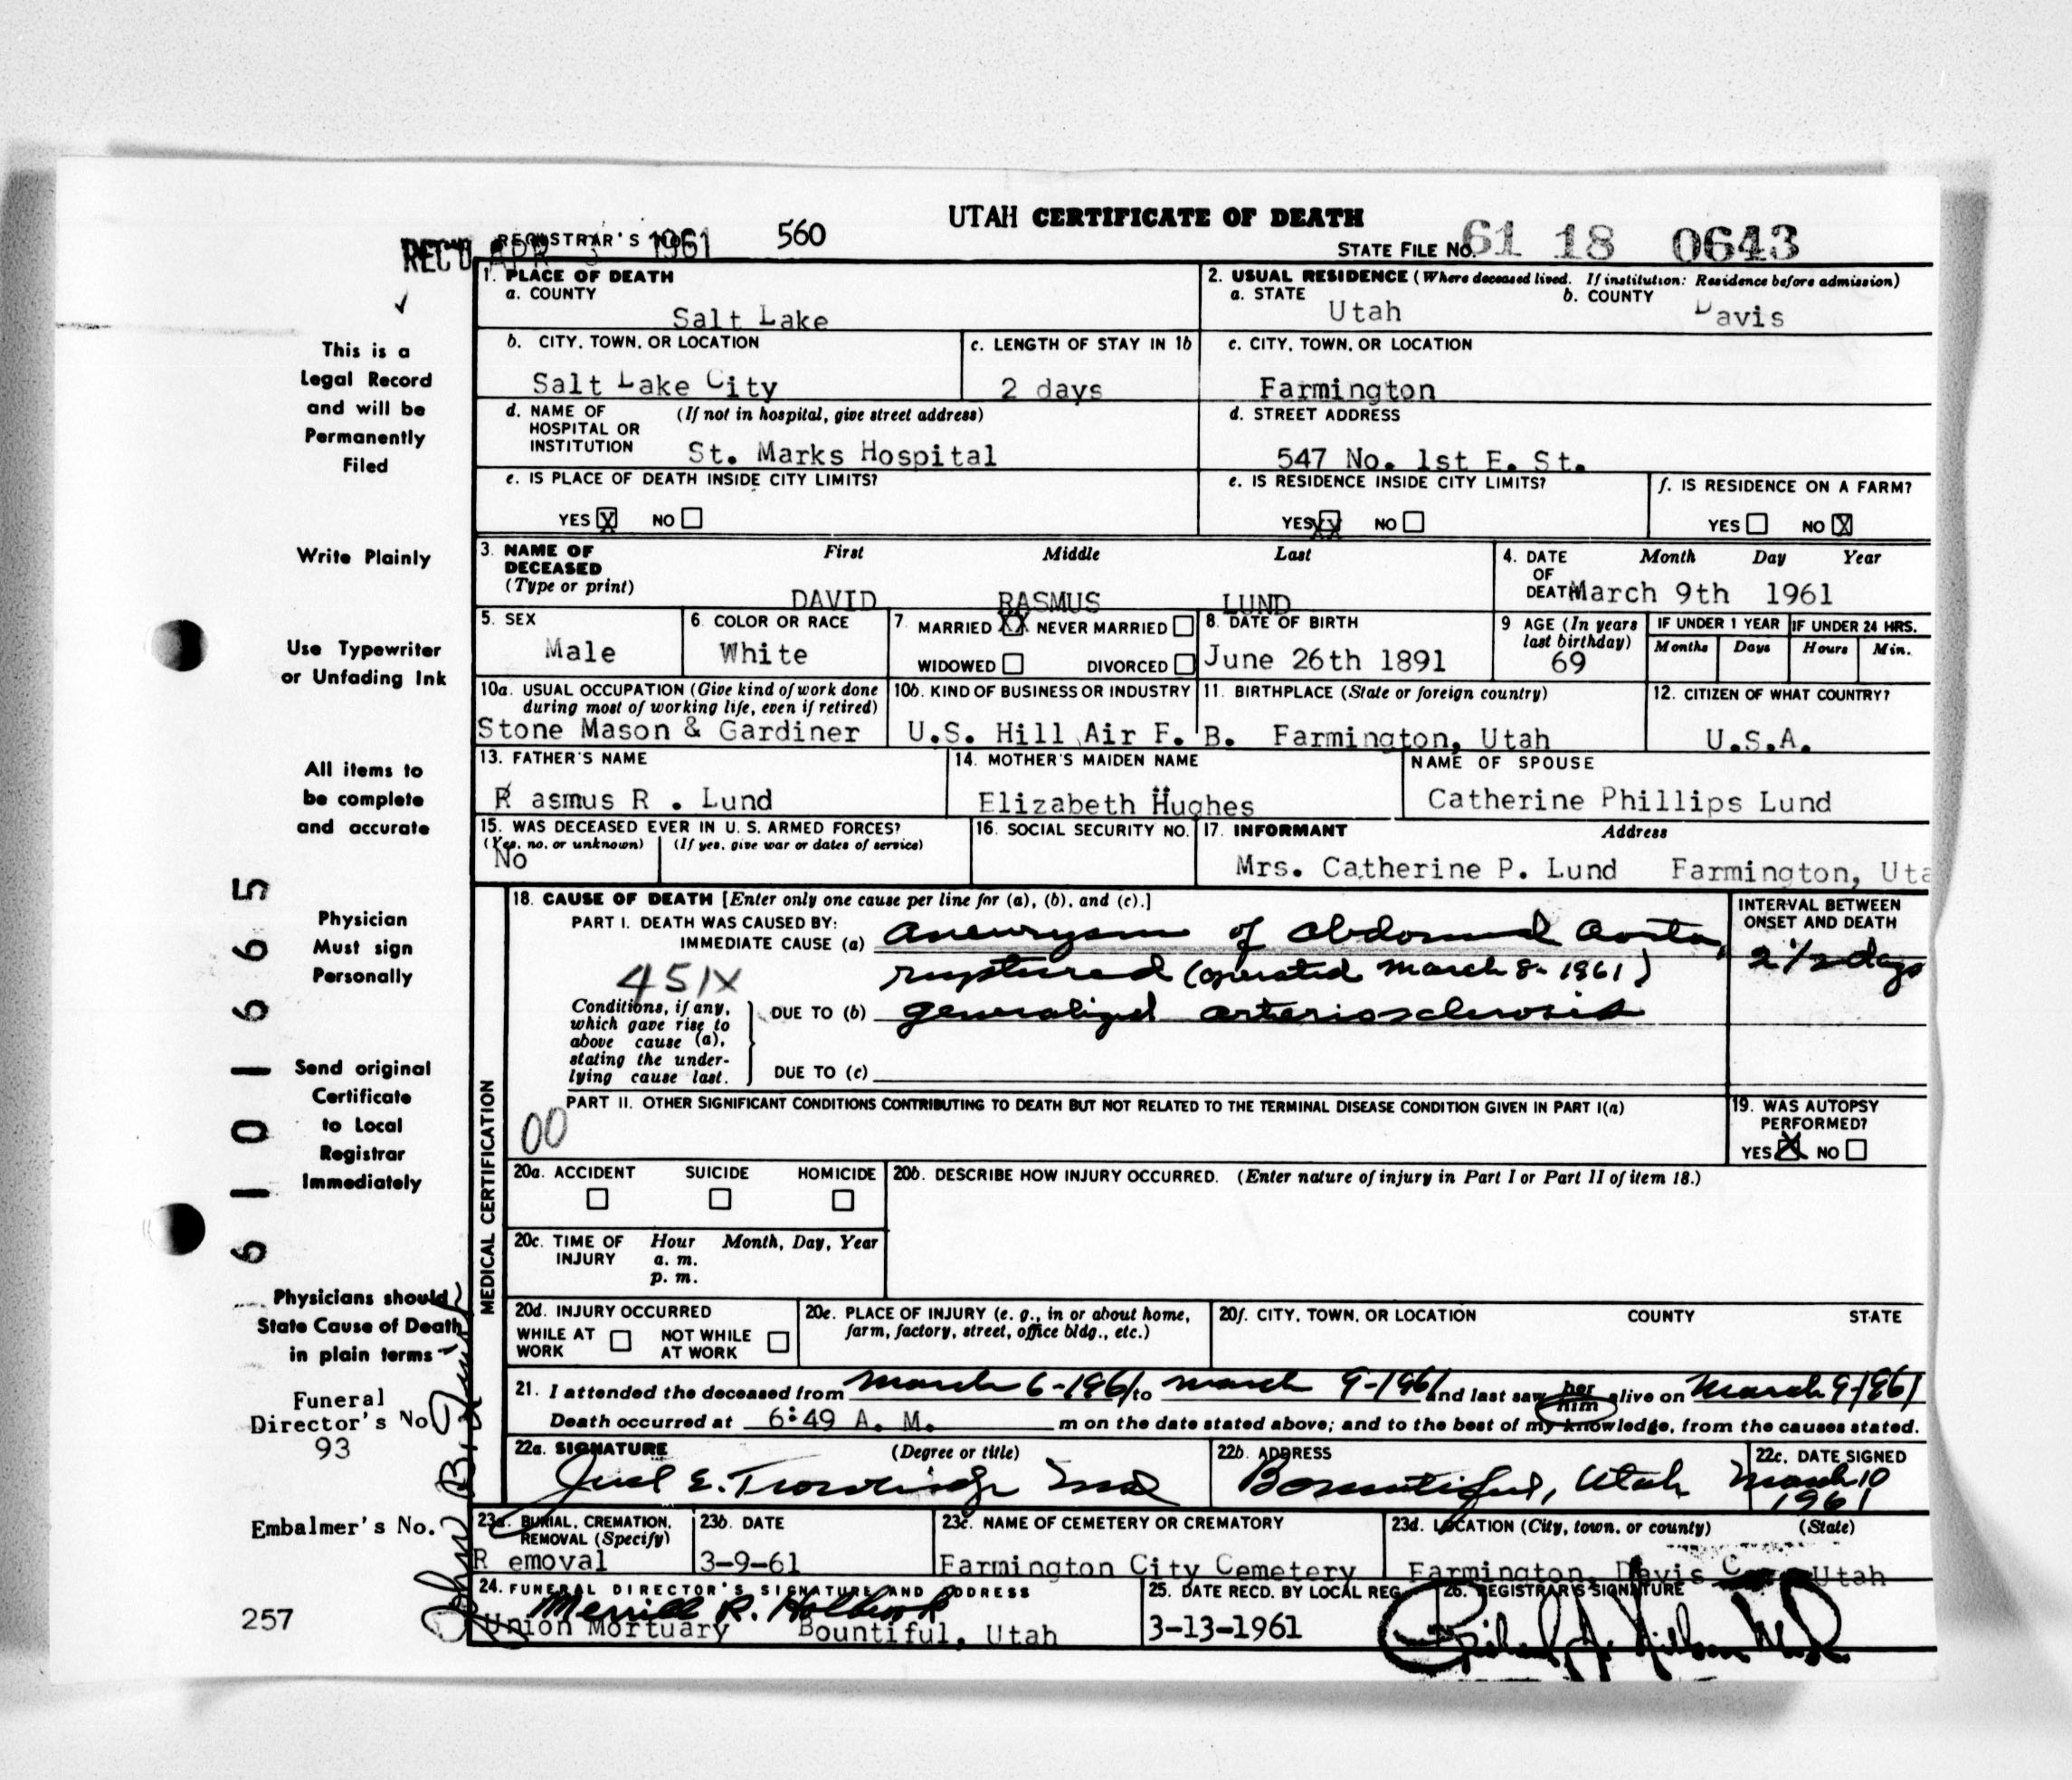 UTAH CERTIFICATE OF DEATH
REC'D APR 3 1961
REGISTRAR'S NO. 560
STATE FILE NO. 61 18 0643
1. PLACE OF DEATH
a. COUNTY
Salt Lake
2. USUAL RESIDENCE (Where deceased lived. If institution: Residence before admission)
a. STATE Utah b. COUNTY Davis
b. CITY, TOWN, OR LOCATION
Salt Lake City
c. LENGTH OF STAY IN 1b
2 days
c. CITY, TOWN, OR LOCATION
Farmington
d. NAME OF HOSPITAL OR INSTITUTION (If not in hospital, give street address)
St. Marks Hospital
d. STREET ADDRESS
547 No. 1st E. St.
e. IS PLACE OF DEATH INSIDE CITY LIMITS?
YES X NO
e. IS RESIDENCE INSIDE CITY LIMITS?
YES XX NO
f. IS RESIDENCE ON A FARM?
YES NO X
3. NAME OF DECEASED (Type or print)
First Middle Last
DAVID RASMUS LUND
4. DATE OF DEATH Month Day Year
March 9th 1961
5. SEX
Male
6. COLOR OR RACE
White
7. MARRIED XX NEVER MARRIED
WIDOWED DIVORCED
8. DATE OF BIRTH
June 26th 1891
9 AGE (In years last birthday)
69
IF UNDER 1 YEAR IF UNDER 24 HRS.
Months Days Hours Min.
10a. USUAL OCCUPATION (Give kind of work done during most of working life, even if retired)
Stone Mason & Gardiner
10b. KIND OF BUSINESS OR INDUSTRY
U.S. Hill Air F. B.
11. BIRTHPLACE (State or foreign country)
Farmington, Utah
12. CITIZEN OF WHAT COUNTRY?
U.S.A.
13. FATHER'S NAME
R asmus R . Lund
14. MOTHER'S MAIDEN NAME
Elizabeth Hughes
NAME OF SPOUSE
Catherine Phillips Lund
15. WAS DECEASED EVER IN U. S. ARMED FORCES?
(Yes, no, or unknown) (If yes, give war or dates of service)
No
16. SOCIAL SECURITY NO.
17. INFORMANT Address
Mrs. Catherine P. Lund Farmington, Uta
MEDICAL CERTIFICATION
18. CAUSE OF DEATH [Enter only one cause per line for (a), (b), and (c).]
PART I. DEATH WAS CAUSED BY:
IMMEDIATE CAUSE (a) aneurysm of abdominal aorta,
ruptured (operated March 8-1961)
451X
INTERVAL BETWEEN ONSET AND DEATH
2 1/2 days
Conditions, if any, which gave rise to above cause (a), stating the underlying cause last.
DUE TO (b) generalized arteriosclerosis
DUE TO (c)
PART II. OTHER SIGNIFICANT CONDITIONS CONTRIBUTING TO DEATH BUT NOT RELATED TO THE TERMINAL DISEASE CONDITION GIVEN IN PART I(a)
00
19. WAS AUTOPSY PERFORMED?
YES X NO
20a. ACCIDENT SUICIDE HOMICIDE
20b. DESCRIBE HOW INJURY OCCURRED. (Enter nature of injury in Part I or Part II of item 18.)
20c. TIME OF INJURY Hour Month, Day, Year
a. m.
p. m.
20d. INJURY OCCURRED
WHILE AT WORK NOT WHILE AT WORK
20e. PLACE OF INJURY (e. g., in or about home, farm, factory, street, office bldg., etc.)
20f. CITY, TOWN, OR LOCATION COUNTY STATE
21. I attended the deceased from March 6-1961 to March 9-1961 and last saw her him alive on March 9-1961
Death occurred at 6:49 A. M. m on the date stated above; and to the best of my knowledge, from the causes stated.
22a. SIGNATURE (Degree or title)
E. Trowbridge MD
22b. ADDRESS
Bountiful, Utah
22c. DATE SIGNED
March 10 1961
23a. BURIAL, CREMATION, REMOVAL (Specify)
R emoval
23b. DATE
3-9-61
23c. NAME OF CEMETERY OR CREMATORY
Farmington City Cemetery
23d. LOCATION (City, town, or county) (State)
Farmington, Davis Co. Utah
24. FUNERAL DIRECTOR'S SIGNATURE AND ADDRESS
Merrill R. Holbrook
Union Mortuary Bountiful, Utah
25. DATE RECD. BY LOCAL REG.
3-13-1961
26. REGISTRAR'S SIGNATURE
This is a
Legal Record
and will be
Permanently
Filed
Write Plainly
Use Typewriter
or Unfading Ink
All items to
be complete
and accurate
Physician
Must sign
Personally
Send original
Certificate
to Local
Registrar
Immediately
Physicians should
State Cause of Death
in plain terms
Funeral
Director's No
93
Embalmer's No.
257
6101665